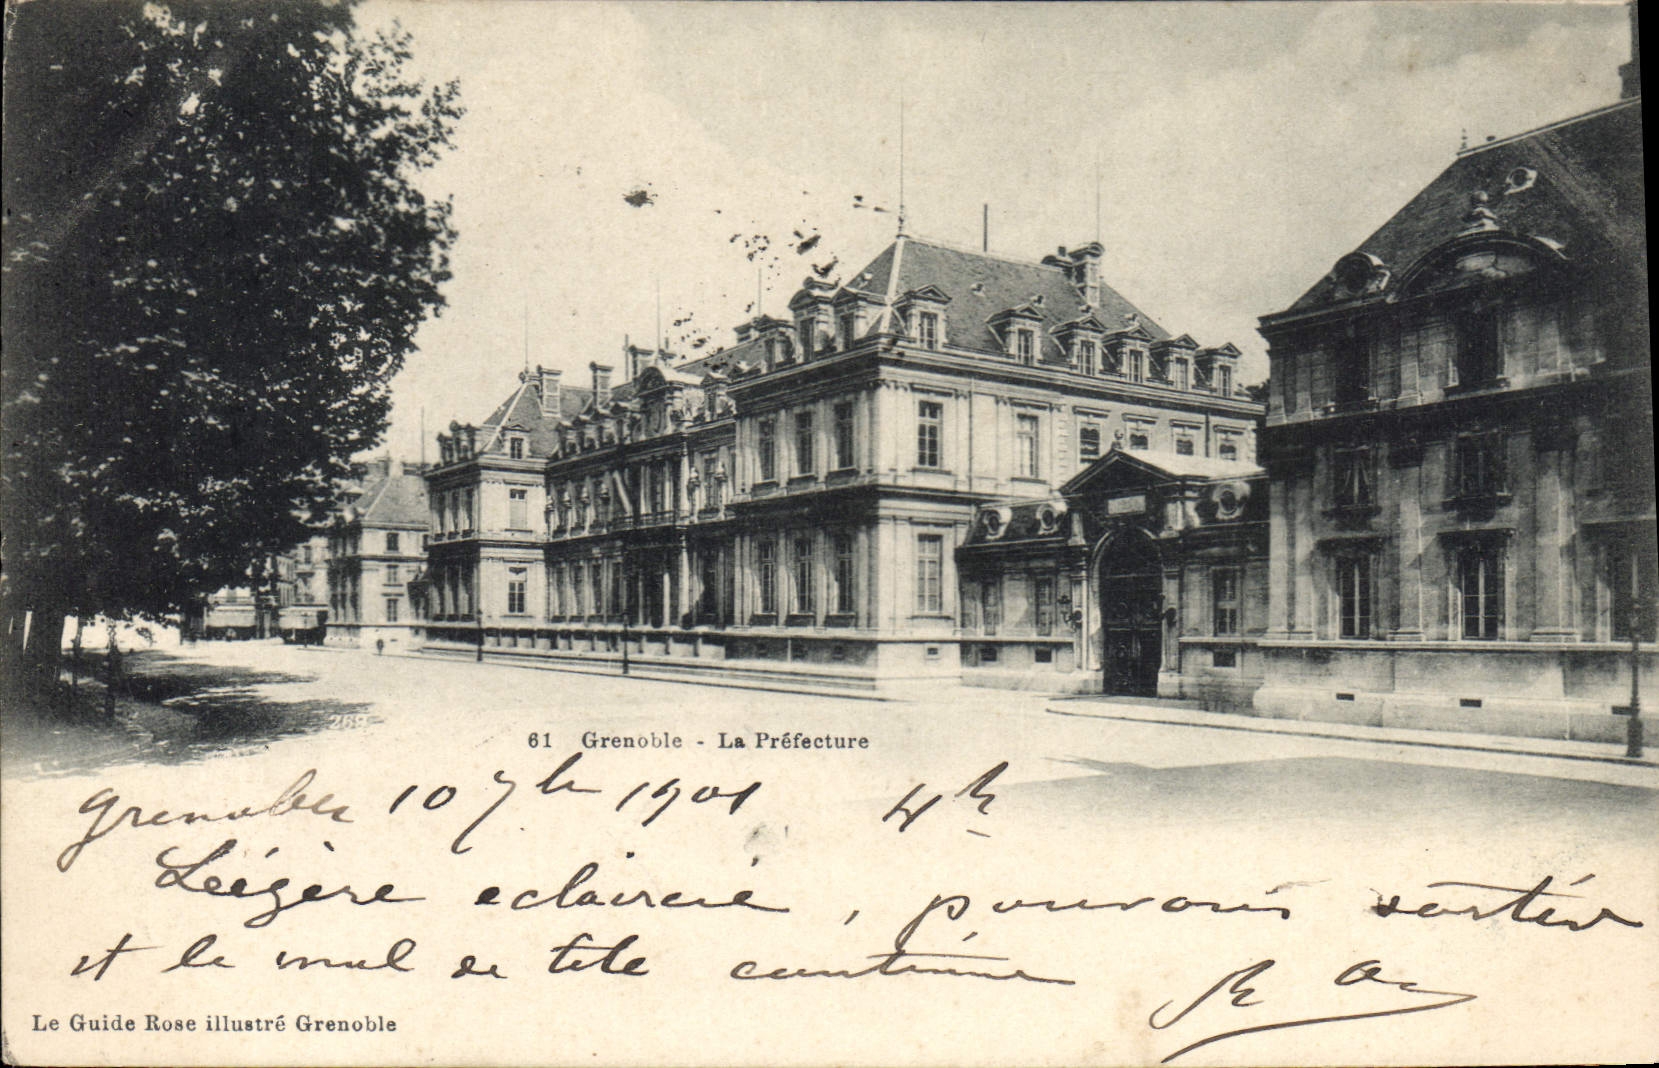 269
61 Grenoble - La Préfecture
Grenoble 10 7bre 1901 4h
Légère eclaircie, pouvons sortir
et le mal de tete continue
Le Guide Rose illustré Grenoble